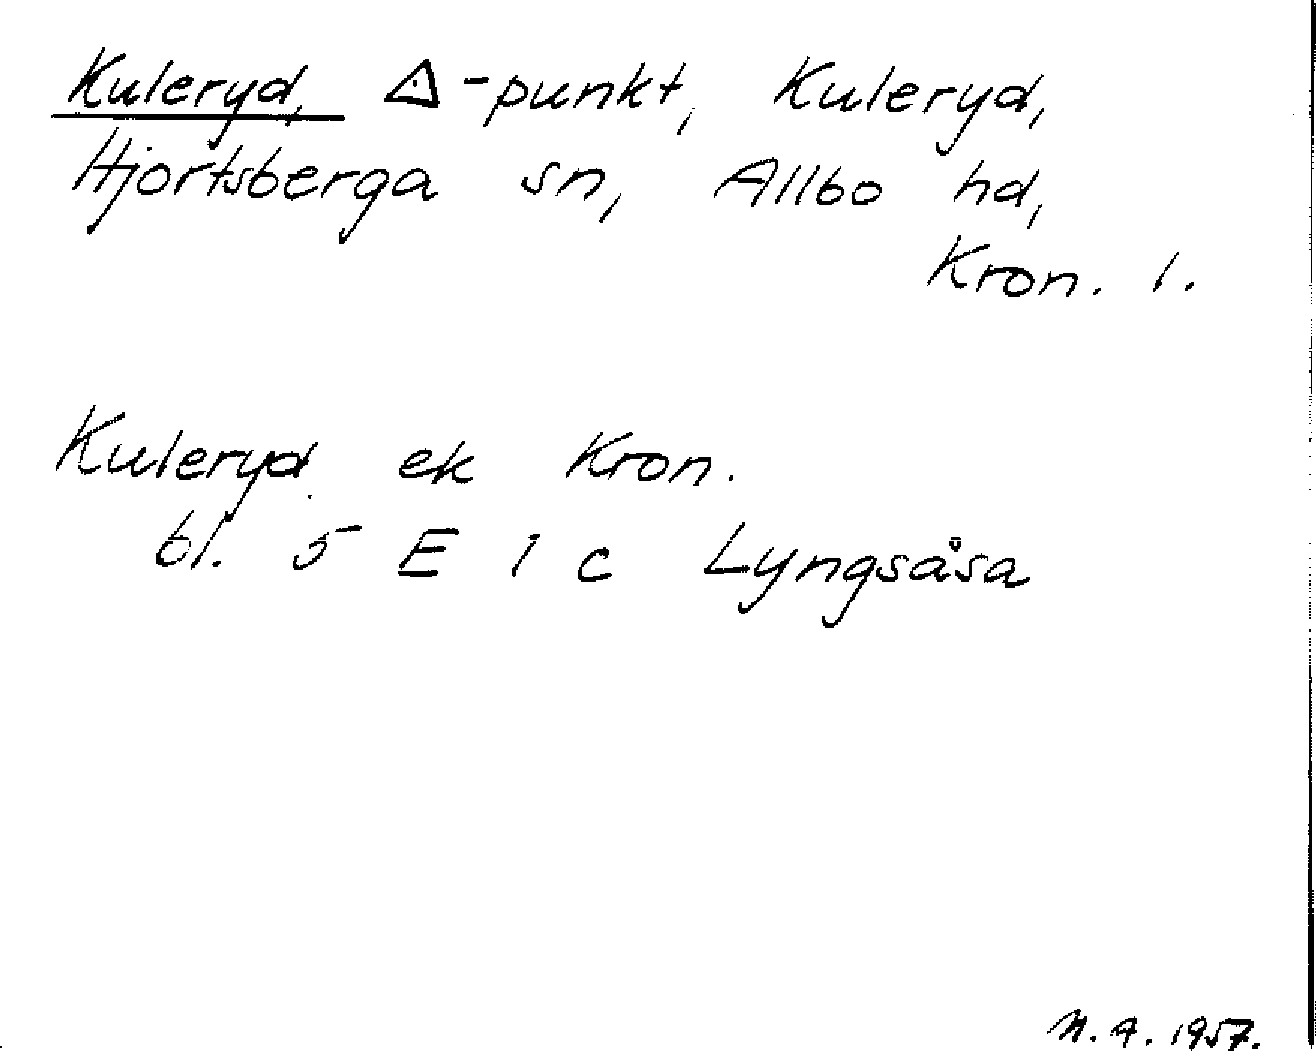 Kuleryd, △-punkt, Kuleryd,
Hjortsberga sn, Allbo hd,
Kron. l.
Kuleryd ek Kron.
bl. 5 E 1 c Lyngsåsa
N. A. 1957.